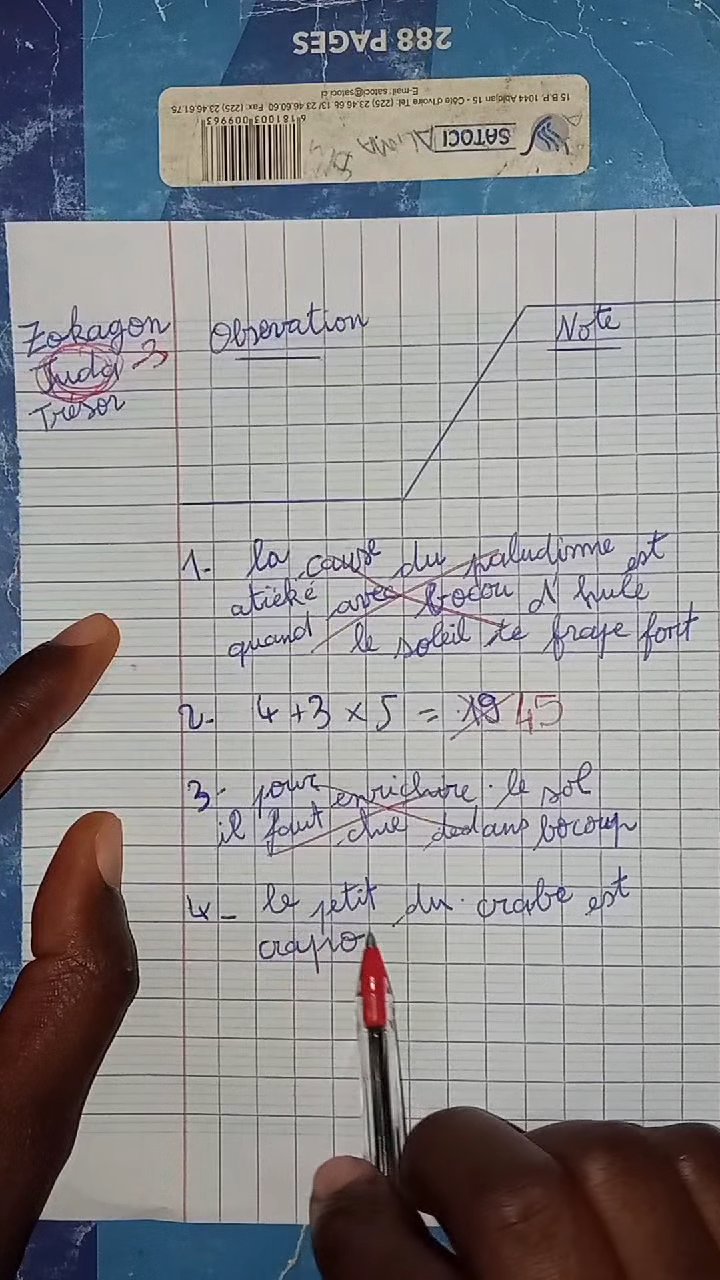 288 PAGES
15 B.P. 1044 Abidjan 15 - Côte d'Ivoire Tel. (225) 23.46.68.13/ 23.46.60.60 Fax: (225) 23.46.61.75
E-mail: satoci@satoci.ci
6 181003 009963
SATOCI
Zokagon
Juda 3
Tresor
Observation
Note
1. la cause du paludisme est
atiéké avec bocou d'huile
quand le soleil te frape fort
2- 4 + 3 × 5 = 19 45
3- pour enrichare le sol
il faut chie dedans bocoup
4- le petit du crabe est
crapo